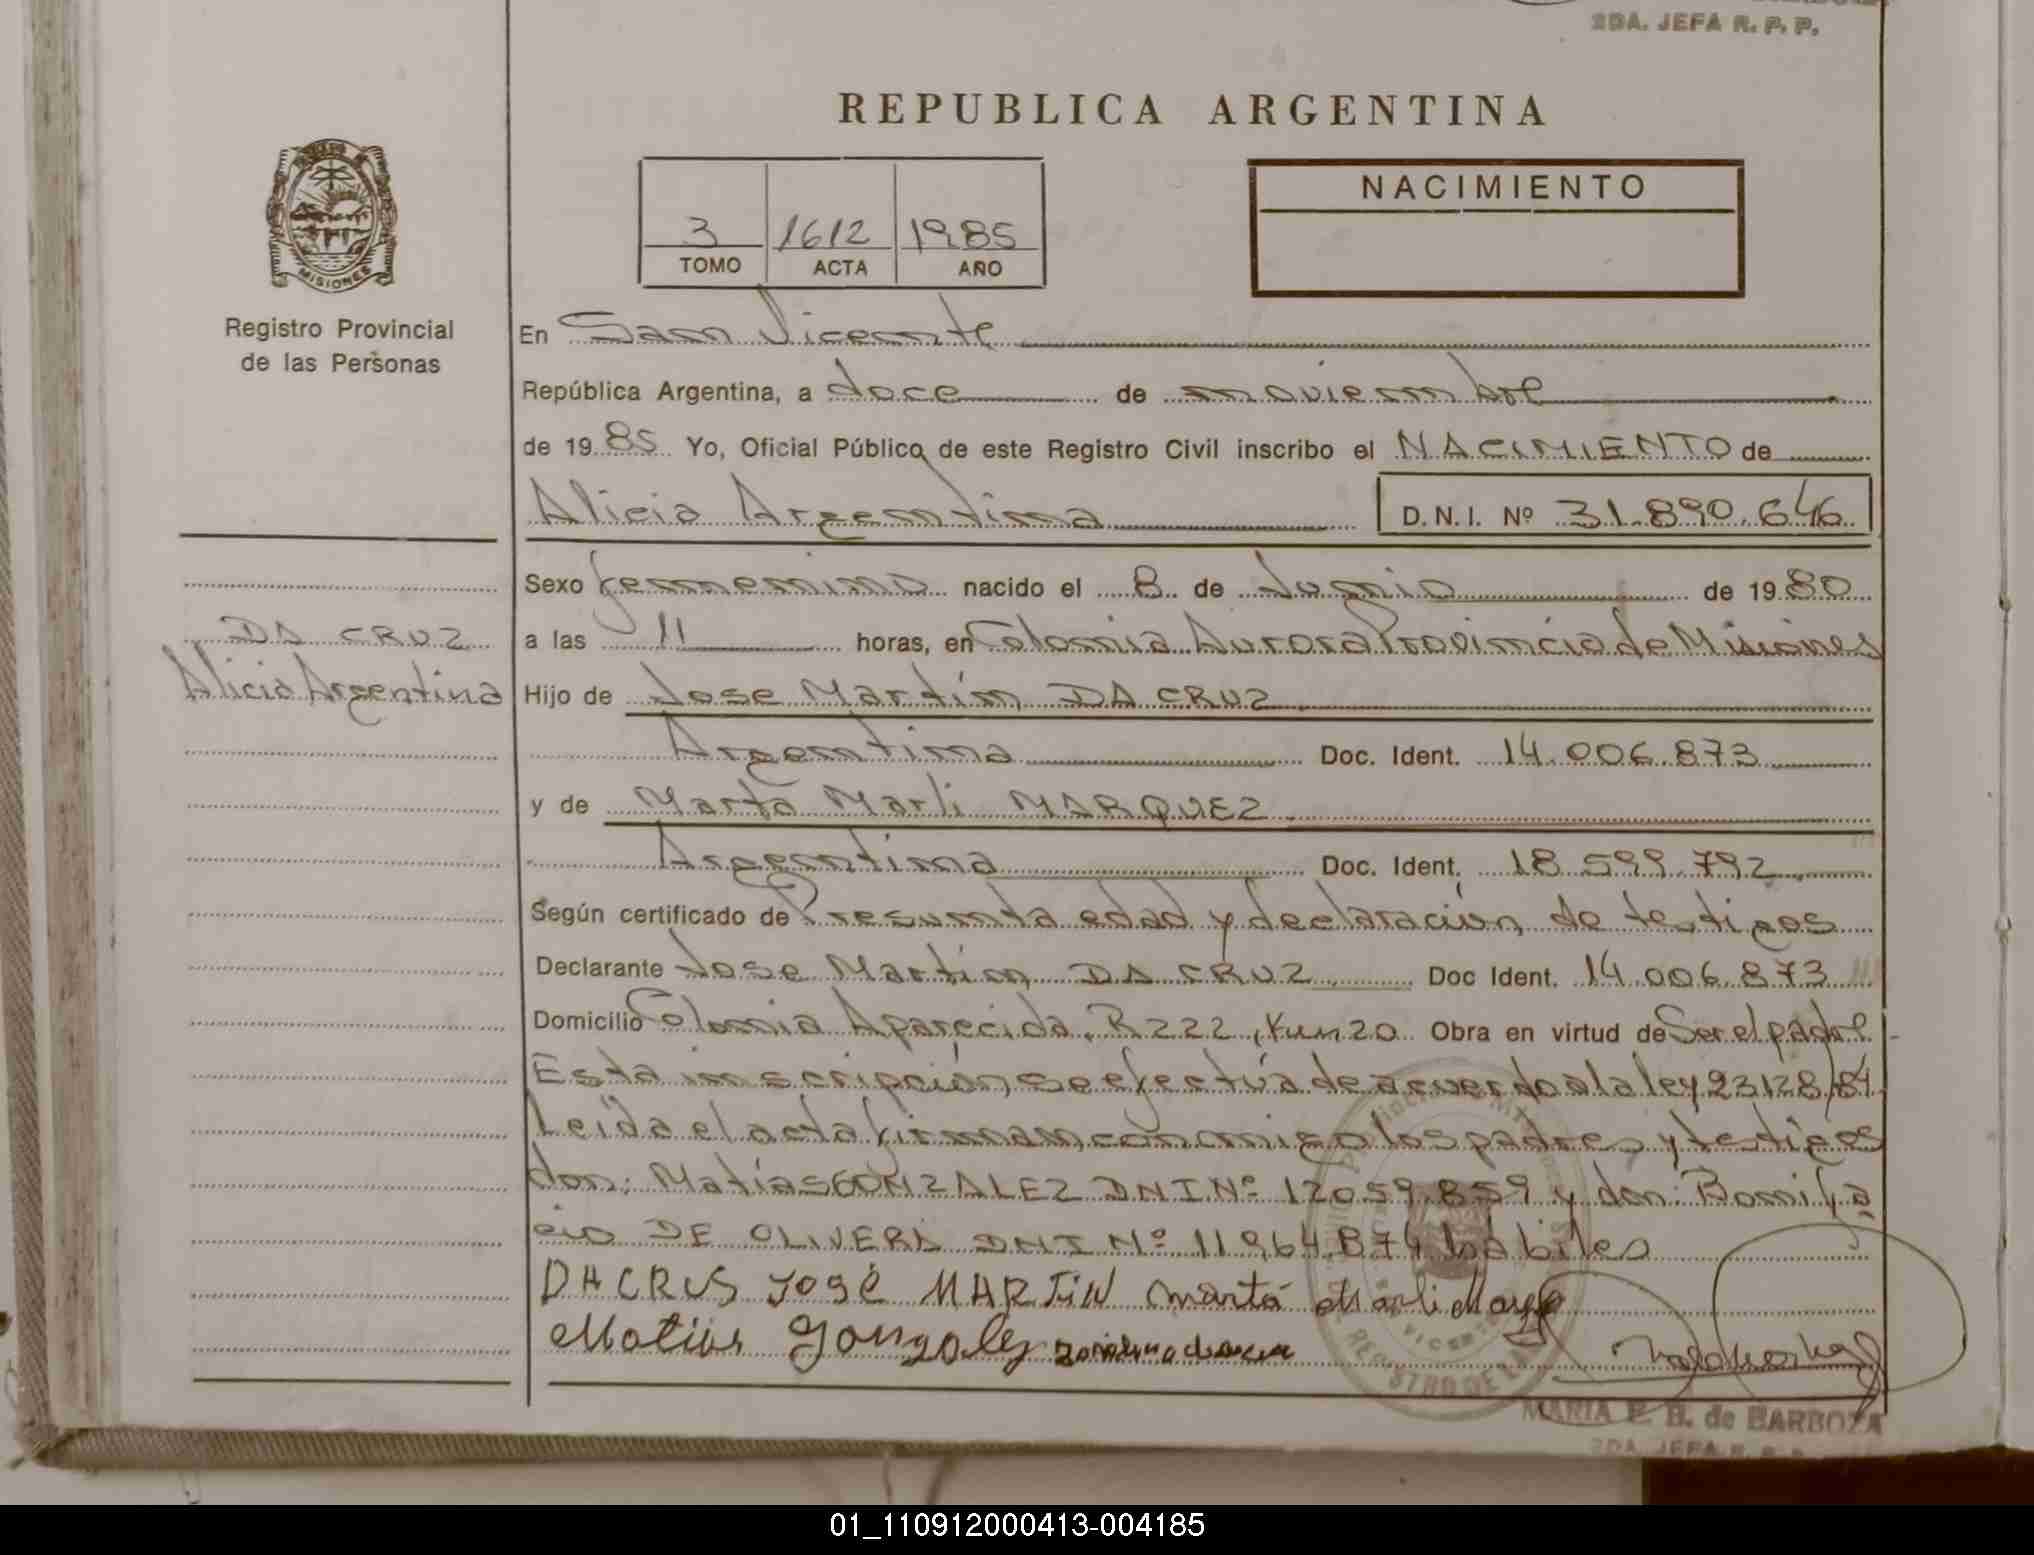 2DA. JEFA R. P. P.
REPUBLICA ARGENTINA
NACIMIENTO
3 1612 1985
TOMO ACTA AÑO
MISIONES
Registro Provincial
de las Personas
En San Vicente
República Argentina, a doce de noviembre
de 1985 Yo, Oficial Público de este Registro Civil inscribo el NACIMIENTO de
Alicia Argentina D.N.I. Nº 31.890.646
Sexo femenino nacido el 8 de Junio de 1980
DA CRUZ
Alicia Argentina
a las 11 horas, en Colonia Aurora Provincia de Misiones
Hijo de Jose Martín DA CRUZ
Argentina Doc. Ident. 14.006.873
y de Marta Marli MARQUEZ
Argentina Doc. Ident. 18.599.792
Según certificado de Presunta edad y declaración de testigos
Declarante Jose Martín DA CRUZ Doc Ident. 14.006.873
Domicilio Colonia Aparecida, R222, Km 20 Obra en virtud de Ser el padre
Esta inscripción, se efectúa de acuerdo a la ley 23128/84
Leída el acta firman, conmigo los padres y testigos
don: Matías GONZALEZ DNI Nº 12059.859 y don: Bonifa
cio DE OLIVERA DNI Nº 11.964.874 hábiles
DACRUS JOSÉ MARTIN Marta Marli
Matias Gonzalez
MARIA E. B. de BARBOZA
2DA. JEFA R. P. P.
01_110912000413-004185